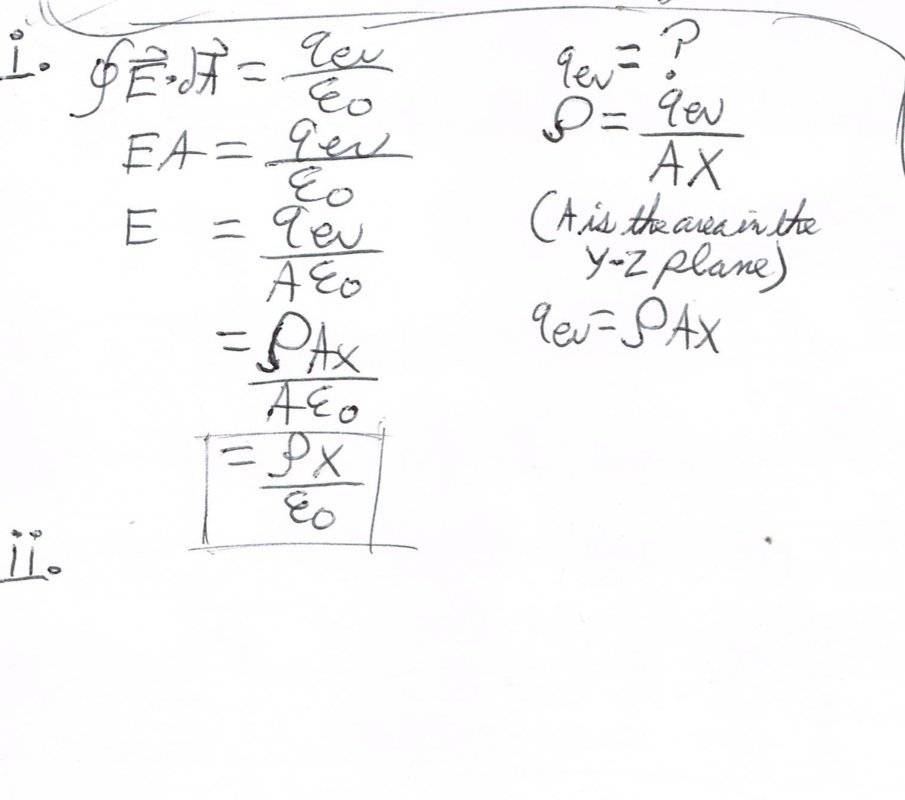 i.
∮E⃗·dA⃗ = qev/ε0
EA = qev/ε0
E = qev/Aε0
= ρAx/Aε0
= ρx/ε0
qev = ?
ρ = qev/AX
(A is the area in the
y-z plane)
qev = ρAx
ii.